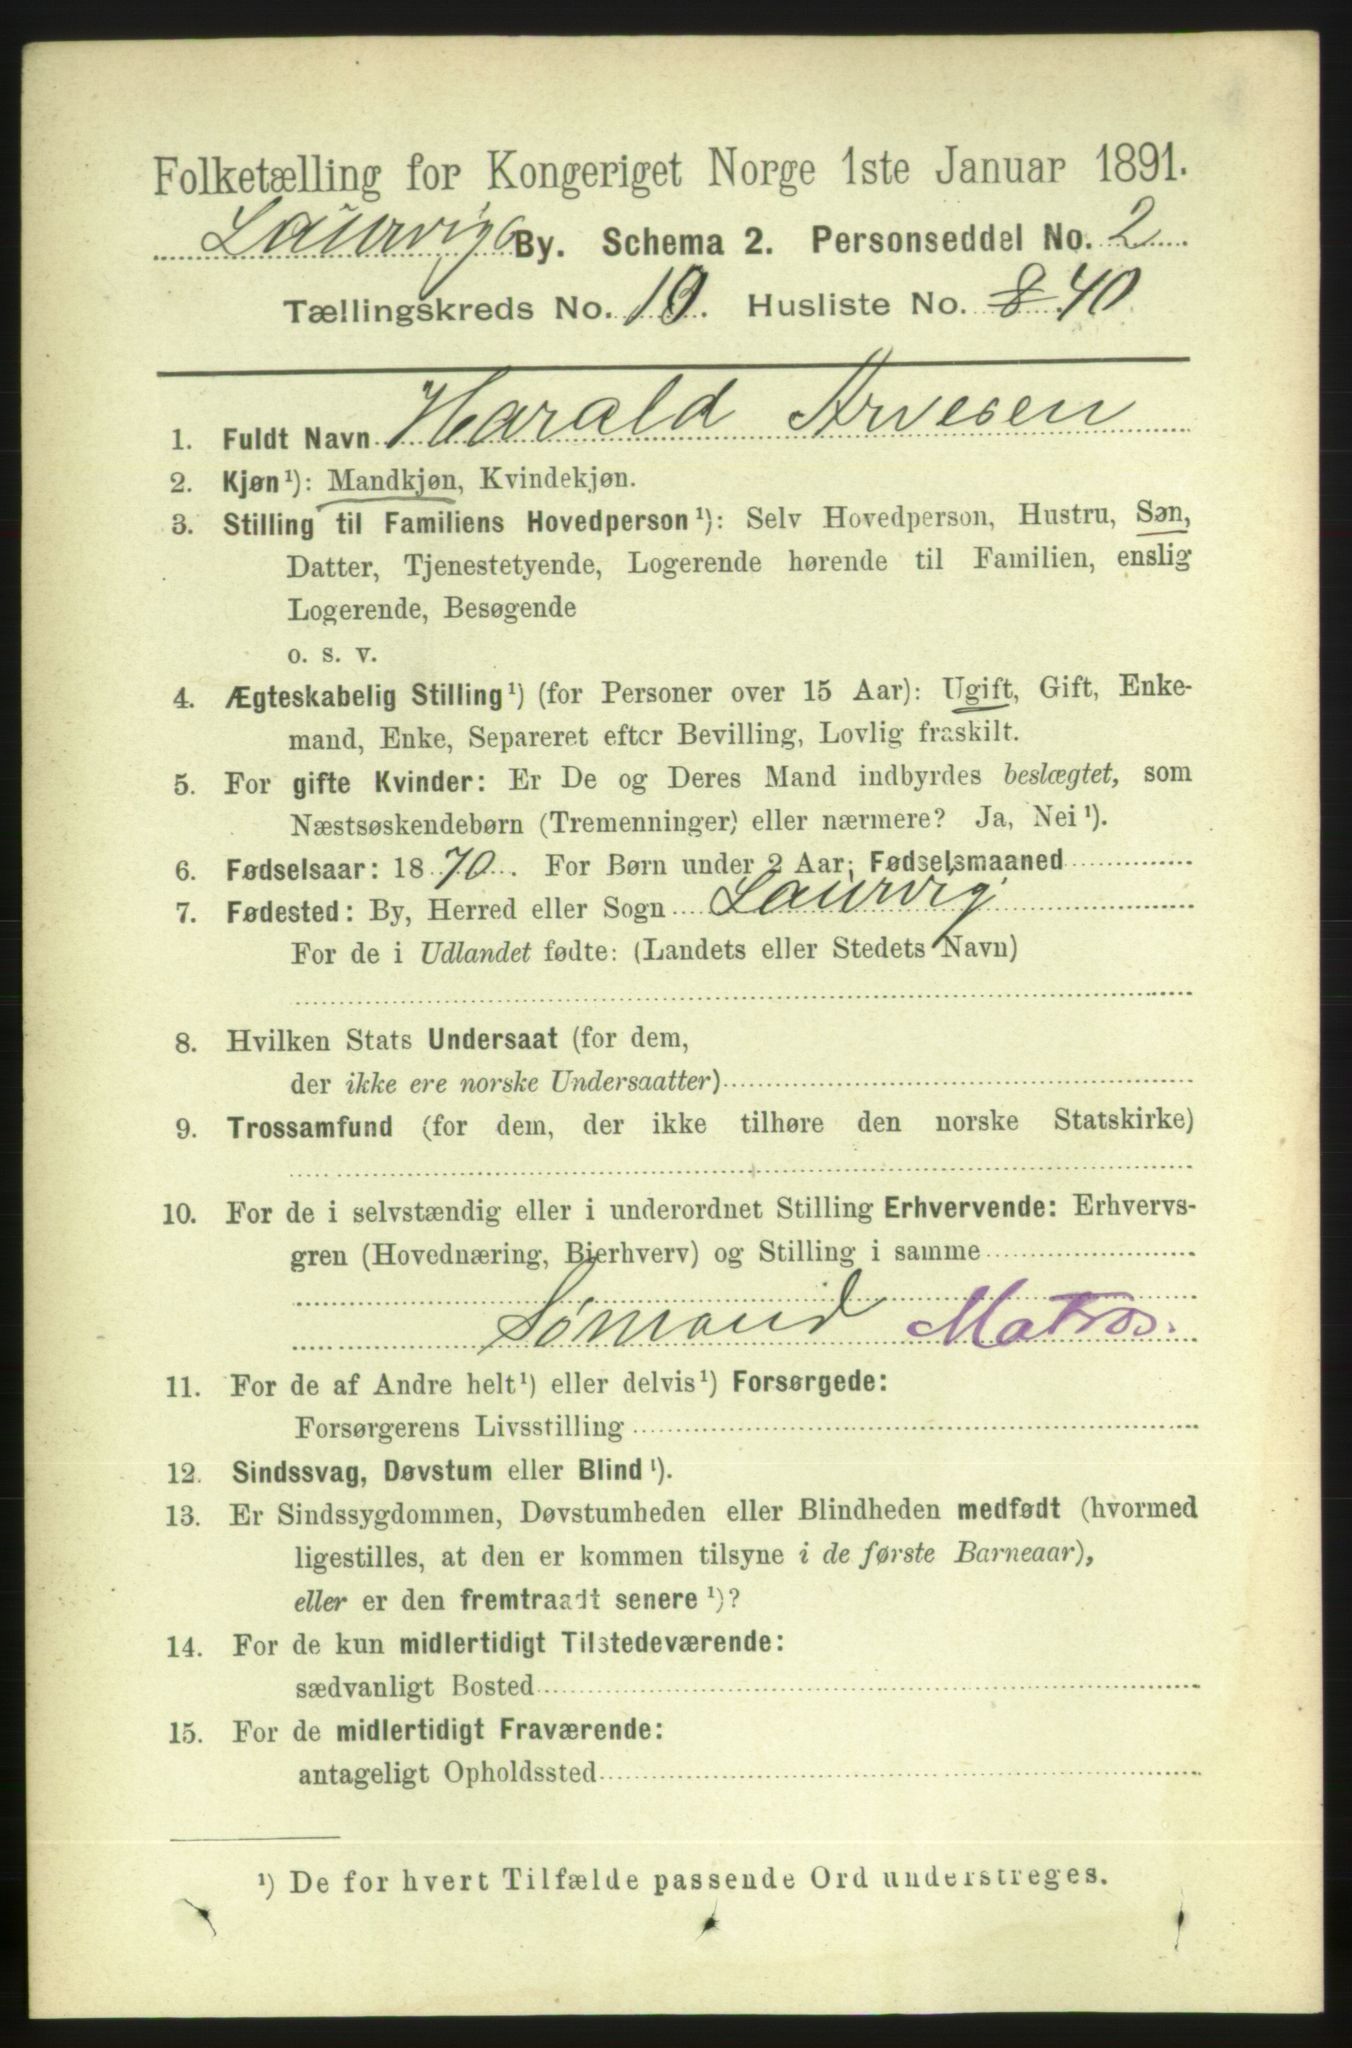 Folketælling for Kongeriget Norge 1ste Januar 1891.
Laurvigs By. Schema 2. Personseddel No. 2
Tællingskreds No. 10. Husliste No. 8 40
1. Fuldt Navn Harald Arvesen
2. Kjøn¹): Mandkjøn, Kvindekjøn.
3. Stilling til Familiens Hovedperson¹): Selv Hovedperson, Hustru, Søn,
Datter, Tjenestetyende, Logerende hørende til Familien, enslig
Logerende, Besøgende
o. s. v.
4. Ægteskabelig Stilling¹) (for Personer over 15 Aar): Ugift, Gift, Enke-
mand, Enke, Separeret efter Bevilling, Lovlig fraskilt.
5. For gifte Kvinder: Er De og Deres Mand indbyrdes beslægtet, som
Næstsøskendebørn (Tremenninger) eller nærmere? Ja, Nei¹).
6. Fødselsaar: 1870. For Børn under 2 Aar: Fødselsmaaned
7. Fødested: By, Herred eller Sogn Laurvig
For de i Udlandet fødte: (Landets eller Stedets Navn)
8. Hvilken Stats Undersaat (for dem,
der ikke ere norske Undersaatter)
9. Trossamfund (for dem, der ikke tilhøre den norske Statskirke)
10. For de i selvstændig eller i underordnet Stilling Erhvervende: Erhvervs-
gren (Hovednæring, Bierhverv) og Stilling i samme
Sømand Matros.
11. For de af Andre helt¹) eller delvis¹) Forsørgede:
Forsørgerens Livsstilling
12. Sindssvag, Døvstum eller Blind¹).
13. Er Sindssygdommen, Døvstumheden eller Blindheden medfødt (hvormed
ligestilles, at den er kommen tilsyne i de første Barneaar),
eller er den fremtraadt senere¹)?
14. For de kun midlertidigt Tilstedeværende:
sædvanligt Bosted
15. For de midlertidigt Fraværende:
antageligt Opholdssted
¹) De for hvert Tilfælde passende Ord understreges.